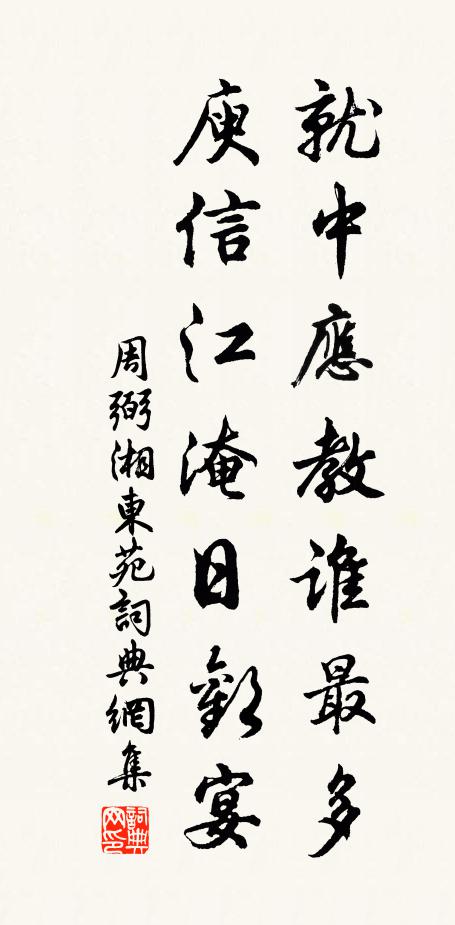 就中應教誰最多
庾信江淹日歡宴
周弼湘東苑詞典網集
詞典
网印